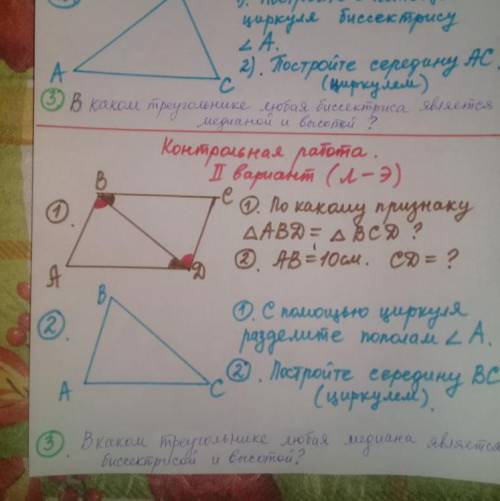 циркуля биссектрису
∠A.
2). Постройте середину AC.
(циркулем)
A
C
③ В каком треугольнике любая биссектриса является
медианой и высотой?
Контрольная работа.
II вариант (Л-Э)
①.
B
C
A
D
①. По какому признаку
△ABD = △BCD ?
②. AB = 10см. CD = ?
②.
B
A
C
①. С помощью циркуля
разделите пополам ∠A.
②. Постройте середину BC
(циркулем).
③. В каком треугольнике любая медиана является
биссектрисой и высотой?